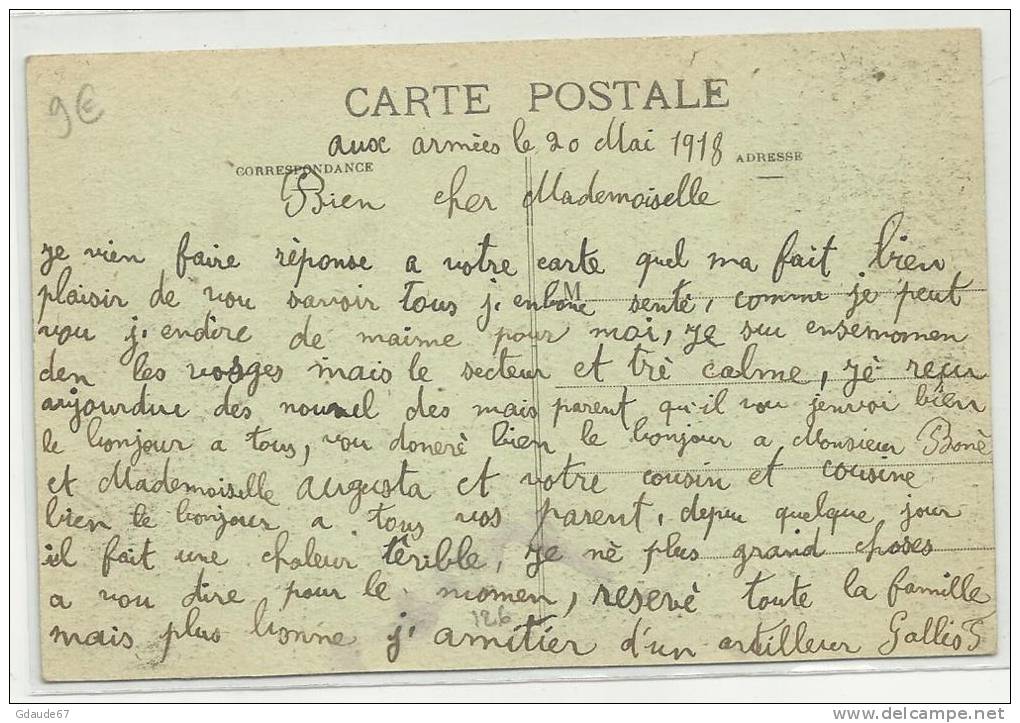 9€
CARTE POSTALE
aux armèes le 20 Mai 1918
CORRESPONDANCE
ADRESSE
Bien cher Mademoiselle
je vien faire rèponse a votre carte quel ma fait bien
M
plaisir de vou savoir tous j'enbone sentè, comme je peut
vou j'endire de maime pour moi, je sui ensemomen
den les vosges mais le secteur et trè calme, jè reçu
aujourdui des nouvel des mais parent qu'il vou jenvoi bien
le bonjour a tous, vou donerè bien le bonjour a Monsieur Bonè
et Mademoiselle augusta et votre cousin et cousine
bien le bonjour a tous vos parent, depui quelque jour
il fait une chaleur tèrible, je nè plus grand choses
a vou dire pour le momen, resevè toute la famille
126
mais plus bonne j'amitier d'un artilleur Gallios
Gdaude67
www.delcampe.net